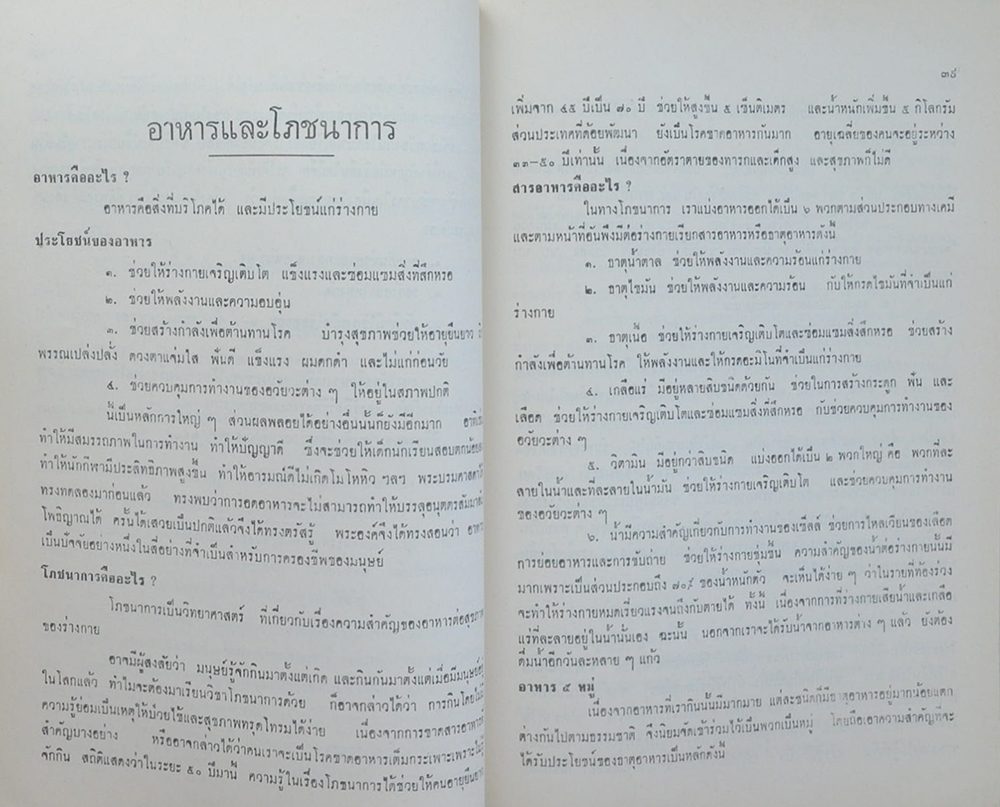 อาหารและโภชนาการ
อาหารคืออะไร ?
อาหารคือสิ่งที่บริโภคได้ และมีประโยชน์แก่ร่างกาย
ประโยชน์ของอาหาร
๑. ช่วยให้ร่างกายเจริญเติบโต แข็งแรงและซ่อมแซมสิ่งที่สึกหรอ
๒. ช่วยให้พลังงานและความอบอุ่น
๓. ช่วยสร้างกำลังเพื่อต้านทานโรค บำรุงสุขภาพช่วยให้อายุยืนยาว
พรรณเปล่งปลั่ง ดวงตาแจ่มใส ฟันดี แข็งแรง ผมดกดำ และไม่แก่ก่อนวัย
๔. ช่วยควบคุมการทำงานของอวัยวะต่าง ๆ ให้อยู่ในสภาพปกติ
นี้เป็นหลักการใหญ่ ๆ ส่วนผลพลอยได้อย่างอื่นนั้นก็ยังมีอีกมาก
ทำให้มีสมรรถภาพในการทำงาน ทำให้ปัญญาดี ซึ่งจะช่วยให้เด็กนักเรียนสอบตกน้อย
ทำให้นักกีฬามีประสิทธิภาพสูงขึ้น ทำให้อารมณ์ดีไม่เกิดโมโหหิว ฯลฯ พระบรมศาสดา
ทรงทดลองมาก่อนแล้ว ทรงพบว่าการอดอาหารจะไม่สามารถทำให้บรรลุอนุตตรสัมมา
โพธิญาณได้ ครั้นได้เสวยเป็นปกติแล้วจึงได้ทรงตรัสรู้ พระองค์จึงได้ทรงสอนว่า
เป็นปัจจัยอย่างหนึ่งในสี่อย่างที่จำเป็นสำหรับการครองชีพของมนุษย์
โภชนาการคืออะไร ?
โภชนาการเป็นวิทยาศาสตร์ ที่เกี่ยวกับเรื่องความสำคัญของอาหารต่อสุขภาพ
ของร่างกาย
อาจมีผู้สงสัยว่า มนุษย์รู้จักกินมาตั้งแต่เกิด และกินกันมาตั้งแต่เมื่อมีมนุษย์
ในโลกแล้ว ทำไมจะต้องมาเรียนวิชาโภชนาการด้วย ก็อาจกล่าวได้ว่า การกินโดย
ความรู้ย่อมเป็นเหตุให้ป่วยไข้และสุขภาพทรุดโทรมได้ง่าย เนื่องจากการขาดสารอาหาร
สำคัญบางอย่าง หรืออาจกล่าวได้ว่าคนเราจะเป็นโรคขาดอาหารเต็มกระเพาะเพราะ
จักกิน สถิติแสดงว่าในระยะ ๕๐ ปีมานี้ ความรู้ในเรื่องโภชนาการได้ช่วยให้คนอายุยืน
๓๙
เพิ่มจาก ๔๕ ปีเป็น ๗๐ ปี ช่วยให้สูงขึ้น ๕ เซ็นติเมตร และน้ำหนักเพิ่มขึ้น ๕ กิโลกรัม
ส่วนประเทศที่ด้อยพัฒนา ยังเป็นโรคขาดอาหารกันมาก อายุเฉลี่ยของคนจะอยู่ระหว่าง
๓๓-๕๐ ปีเท่านั้น เนื่องจากอัตราตายของทารกและเด็กสูง และสุขภาพก็ไม่ดี
สารอาหารคืออะไร ?
ในทางโภชนาการ เราแบ่งอาหารออกได้เป็น ๖ พวกตามส่วนประกอบทางเคมี
และตามหน้าที่อันพึงมีต่อร่างกายเรียกสารอาหารหรือธาตุอาหารดังนี้
๑. ธาตุน้ำตาล ช่วยให้พลังงานและความร้อนแก่ร่างกาย
๒. ธาตุไขมัน ช่วยให้พลังงานและความร้อน กับให้กรดไขมันที่จำเป็นแก่
ร่างกาย
๓. ธาตุเนื้อ ช่วยให้ร่างกายเจริญเติบโตและซ่อมแซมสิ่งสึกหรอ ช่วยสร้าง
กำลังเพื่อต้านทานโรค ให้พลังงานและให้กรดอะมิโนที่จำเป็นแก่ร่างกาย
๔. เกลือแร่ มีอยู่หลายสิบชนิดด้วยกัน ช่วยในการสร้างกระดูก ฟัน และ
เลือด ช่วยให้ร่างกายเจริญเติบโตและซ่อมแซมสิ่งที่สึกหรอ กับช่วยควบคุมการทำงานของ
อวัยวะต่าง ๆ
๕. วิตามิน มีอยู่กว่าสิบชนิด แบ่งออกได้เป็น ๒ พวกใหญ่ คือ พวกที่ละ
ลายในน้ำและที่ละลายในน้ำมัน ช่วยให้ร่างกายเจริญเติบโต และช่วยควบคุมการทำงาน
ของอวัยวะต่าง ๆ
๖. น้ำมีความสำคัญเกี่ยวกับการทำงานของเซ็ลล์ ช่วยการไหลเวียนของเลือด
การย่อยอาหารและการขับถ่าย ช่วยให้ร่างกายชุ่มชื้น ความสำคัญของน้ำต่อร่างกายนั้นมี
มากเพราะเป็นส่วนประกอบถึง ๗๐% ของน้ำหนักตัว จะเห็นได้ง่าย ๆ ว่าในรายที่ท้องร่วง
จะทำให้ร่างกายหมดเรี่ยวแรงจนถึงกับตายได้ ทั้งนี้ เนื่องจากการที่ร่างกายเสียน้ำและเกลือ
แร่ที่ละลายอยู่ในน้ำนั่นเอง ฉะนั้น นอกจากเราจะได้รับน้ำจากอาหารต่าง ๆ แล้ว ยังต้อง
ดื่มน้ำอีกวันละหลาย ๆ แก้ว
อาหาร ๕ หมู่
เนื่องจากอาหารที่เรากินนั้นมีมากมาย แต่ละชนิดก็มีธาตุอาหารอยู่มากน้อยแตก
ต่างกันไปตามธรรมชาติ จึงนิยมจัดเข้าร่วมไว้เป็นพวกเป็นหมู่ โดยถือเอาความสำคัญที่จะ
ได้รับประโยชน์ของธาตุอาหารเป็นหลักดังนี้